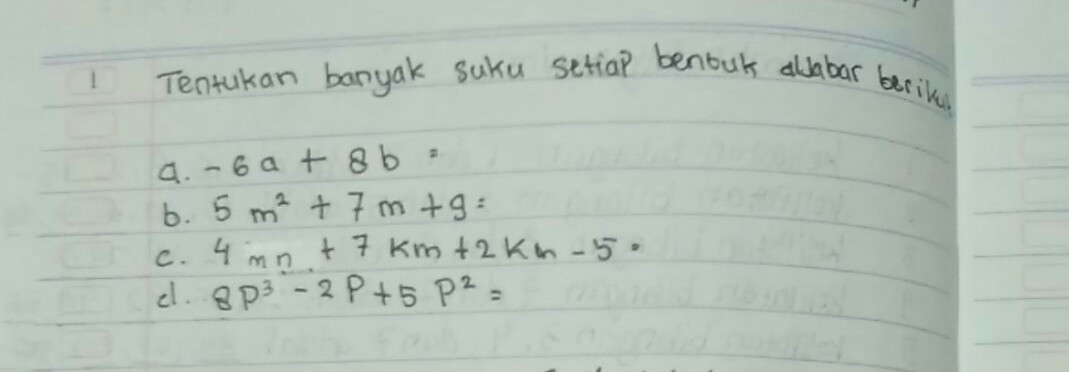 1 Tentukan banyak suku setiap bentuk aljabar berikut
a. -6a + 8b =
b. 5 m² + 7m + 9 =
c. 4 mn + 7 km + 2 kn - 5 =
d. 8p³ - 2p + 5 p² =